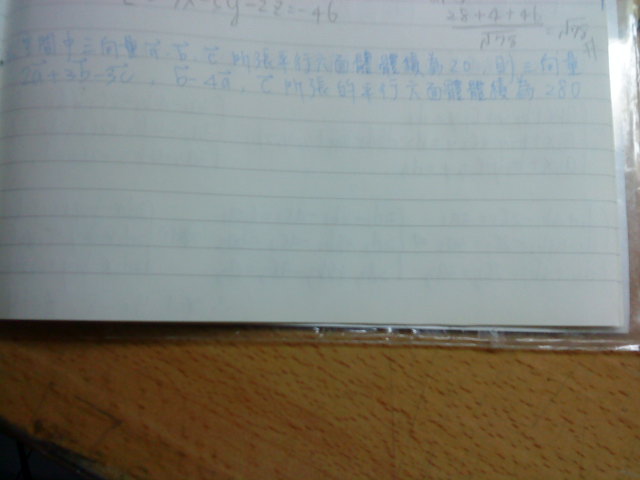 28+4+46
空間中三向量 a, b, c 所張平行六面體體積為20，則三向量
2a+3b-3c, b-4a, c 所張的平行六面體體積為 280